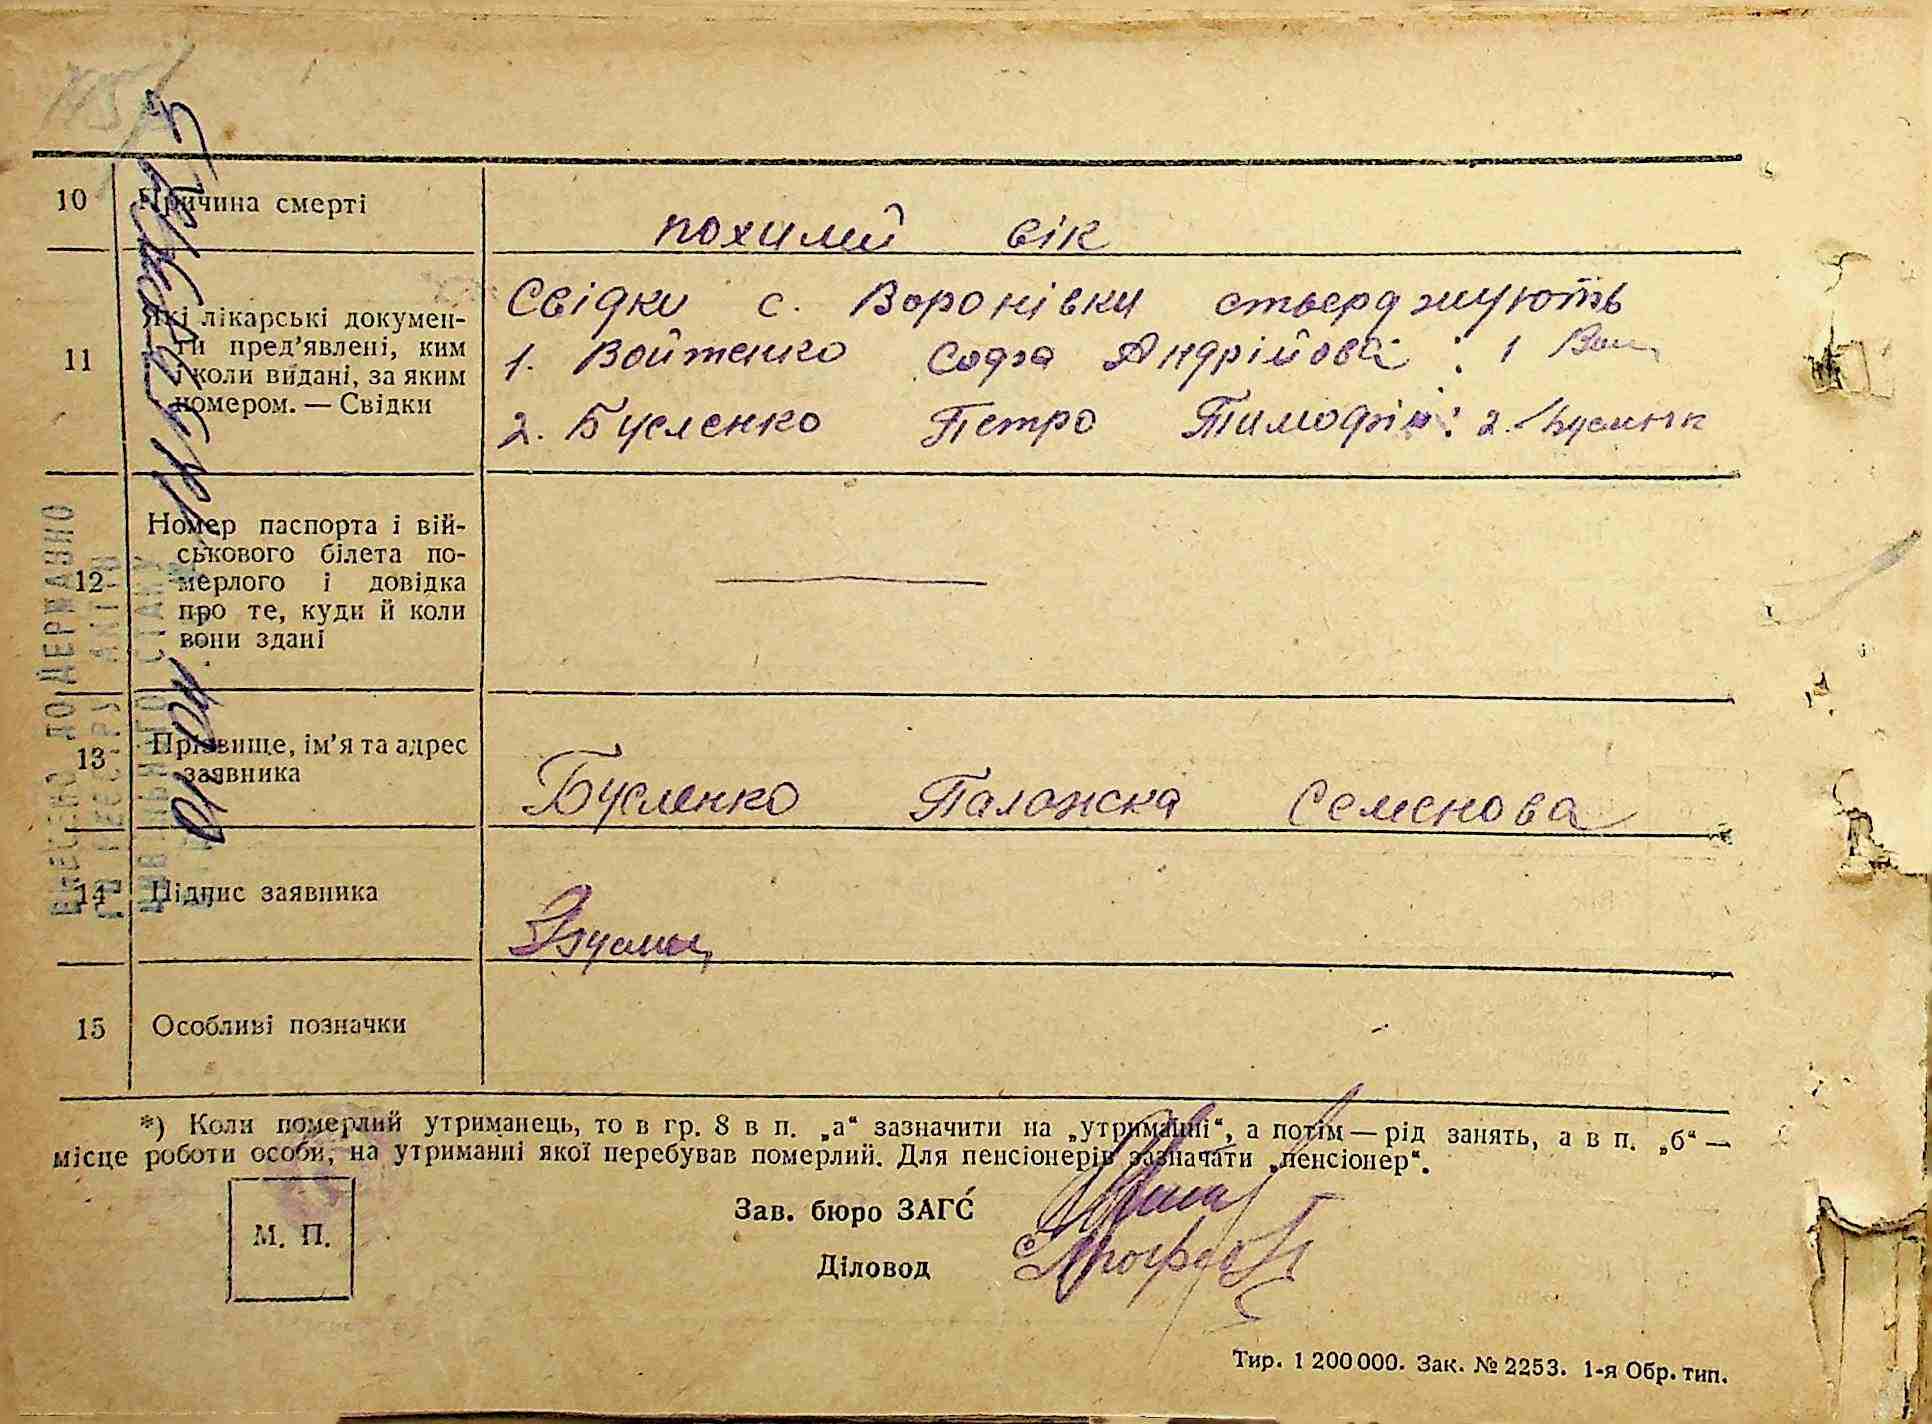 10 Причина смерті
похилий вік
11 Які лікарські докумен-
ти пред'явлені, ким
коли видані, за яким
номером. — Свідки
Свідки с. Воронівки стверджують
1. Войтенко Софія Андрійова : 1
2. Бусленко Петро Тимофій : 2.
12 Номер паспорта і вій-
ськового білета по-
мерлого і довідка
про те, куди й коли
вони здані
13 Прізвище, ім'я та адрес
заявника
Бусленко Палажска Семенова
14 Підпис заявника
15 Особливі позначки
*) Коли померлий утриманець, то в гр. 8 в п. „а“ зазначити на „утриманні“, а потім — рід занять, а в п. „б“ —
місце роботи особи, на утриманні якої перебував померлий. Для пенсіонерів зазначати „пенсіонер“.
М. П.
Зав. бюро ЗАГС
Діловод
Тир. 1 200 000. Зак. № 2253. 1-я Обр. тип.
ВНЕСЕНО ДО ДЕРЖАВНО
ГО РЕЄСТРУ АКТІВ
ЦИВІЛЬНОГО СТАНУ